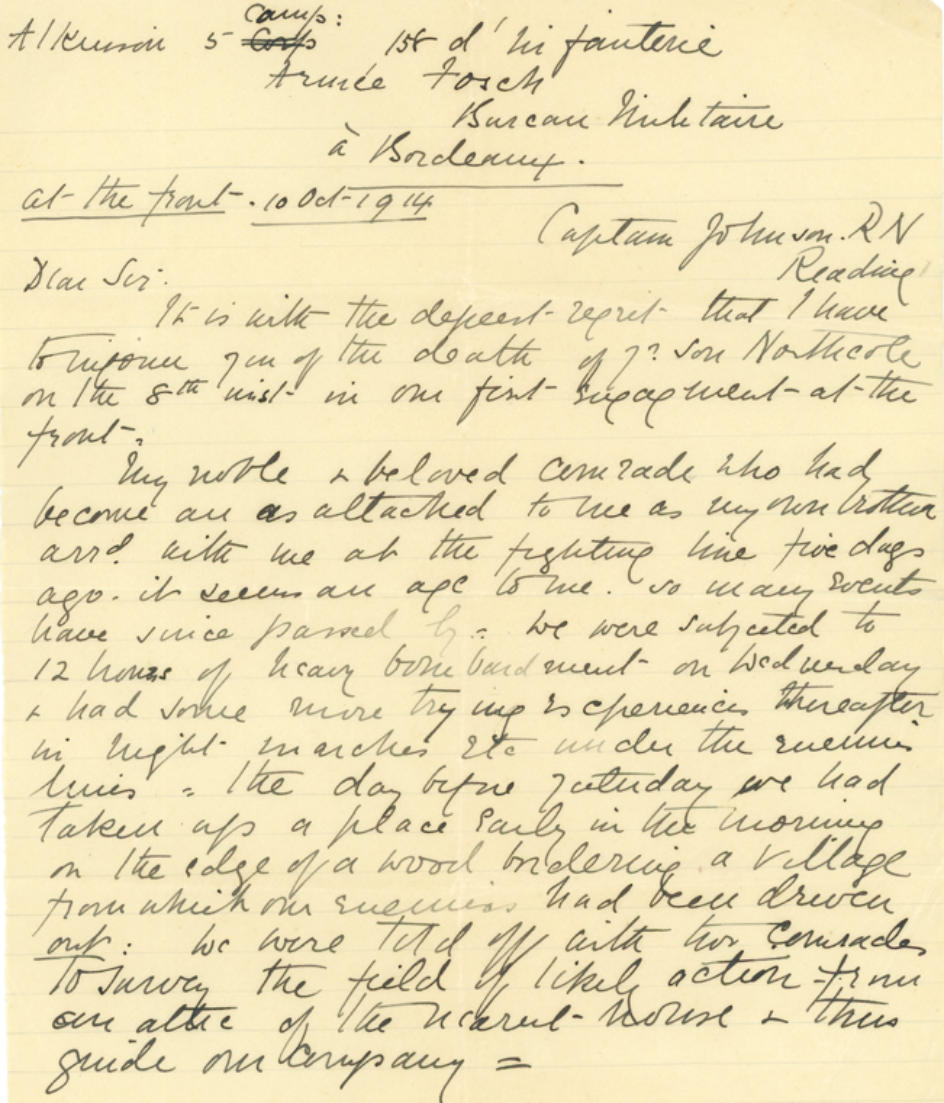 Atkinson 5 Comp:
Corps 158 d'Infanterie
Armée Fosch
Bureau Militaire
à Bordeaux.
at the front. 10 Oct 1914
Captain Johnson. RN
Reading
Dear Sir:
It is with the deepest regret that I have
to inform you of the death of yr son Northcote
on the 8th inst in our first engagement at the
front.
My noble & beloved comrade who had
become as attached to me as my own brother
arrd with me at the fighting line five days
ago. it seems an age to me. so many events
have since passed by = we were subjected to
12 hours of heavy bombardment on Wednesday
& had some more trying experiences thereafter
in night marches etc under the enemies
lines = the day before yesterday we had
taken up a place early in the morning
on the edge of a wood bordering a village
from which our enemies had been driven
out: we were told off with two comrades
to survey the field of likely action from
an attic of the nearest house & thus
guide our company =